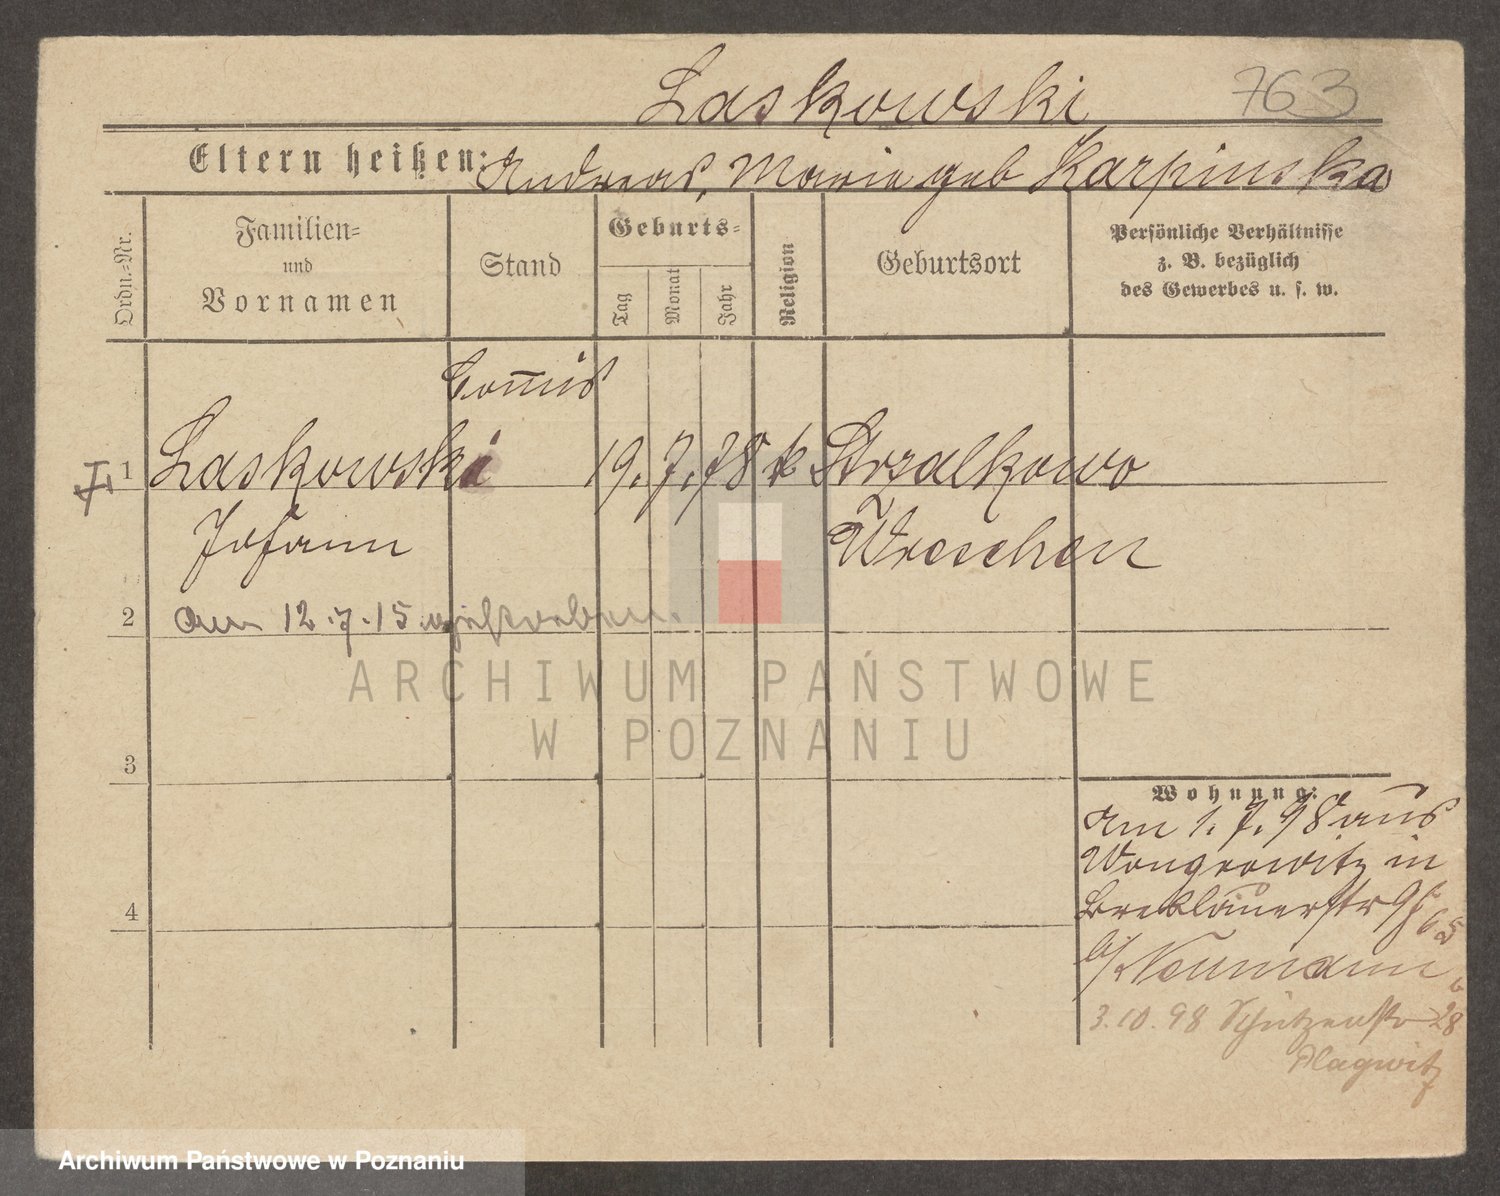 Laskowski 763
Eltern heißen: Andreas, Marie geb Karpinska
Ordn.-Nr.
Familien-
und
Vornamen
Stand
Geburts-
Tag
Monat
Jahr
Religion
Geburtsort
Persönliche Verhältnisse
z. B. bezüglich
des Gewerbes u. s. w.
Com̄is
1 Laskowski 19. 7. 78 k Strzalkowo
Johann Wreschen
2 am 12.7.15 gestorben.
ARCHIWUM PAŃSTWOWE
W POZNANIU
3
Wohnung:
am 1. 7. 98 aus
Wongrowitz in
Breslauerstr
b/ Neumann
4
3.10.98 Schützenstr 28
Plagwitz
Archiwum Państwowe w Poznaniu